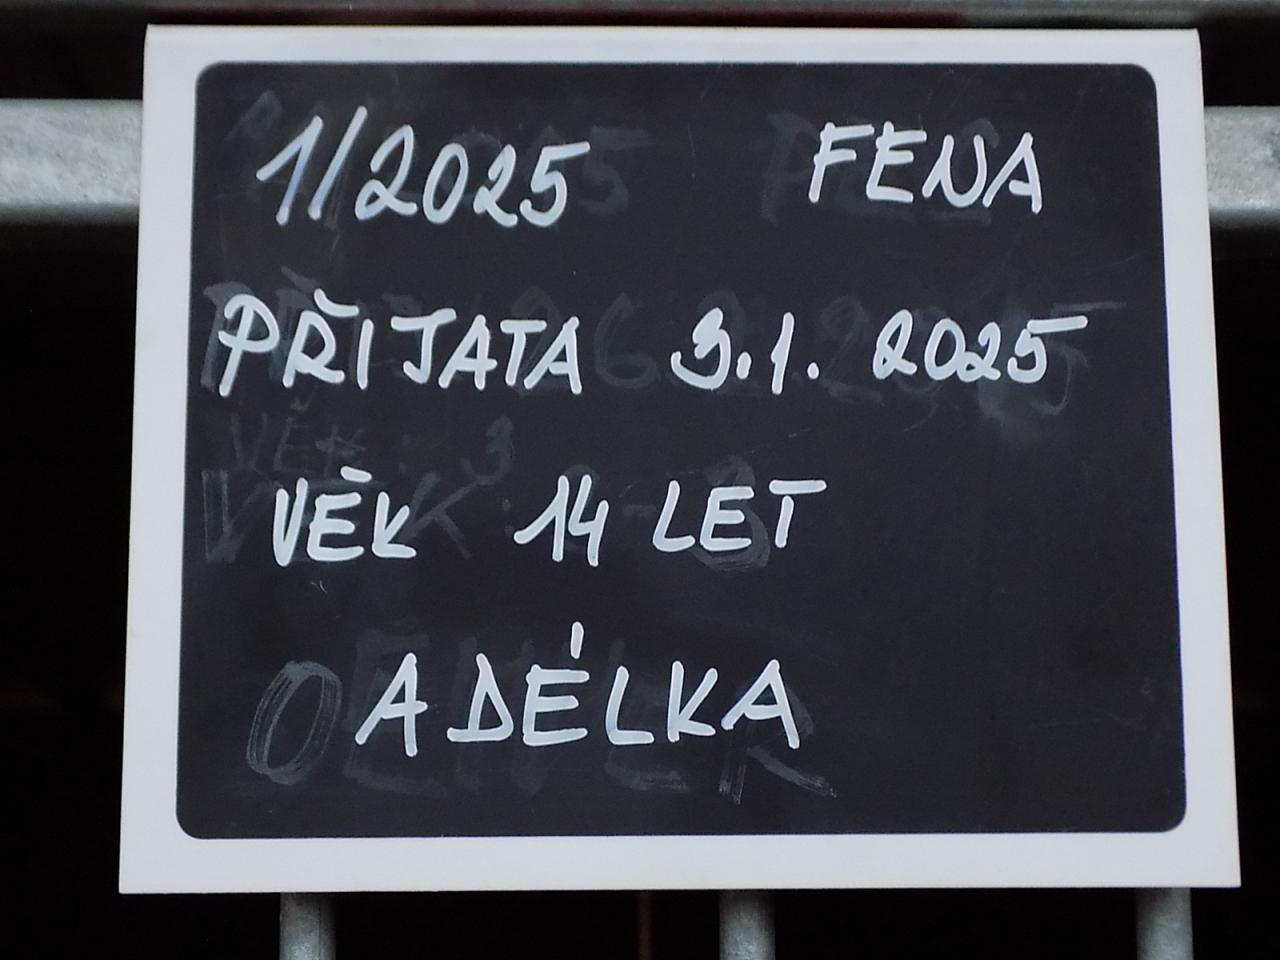 1/2025 FENA
PŘIJATA 3.1. 2025
VĚK 14 LET
ADÉLKA